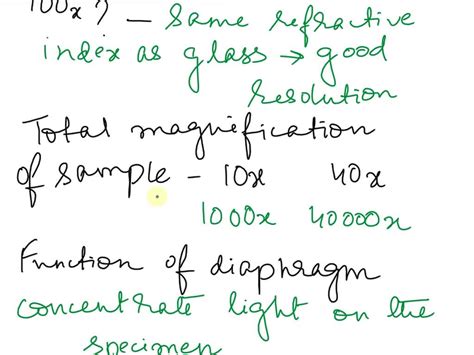 100x? – same refractive
index as glass → good
resolution
Total magnification
of sample – 10x 40x
1000x 40000x
Function of diaphragm
concentrate light on the
specimen